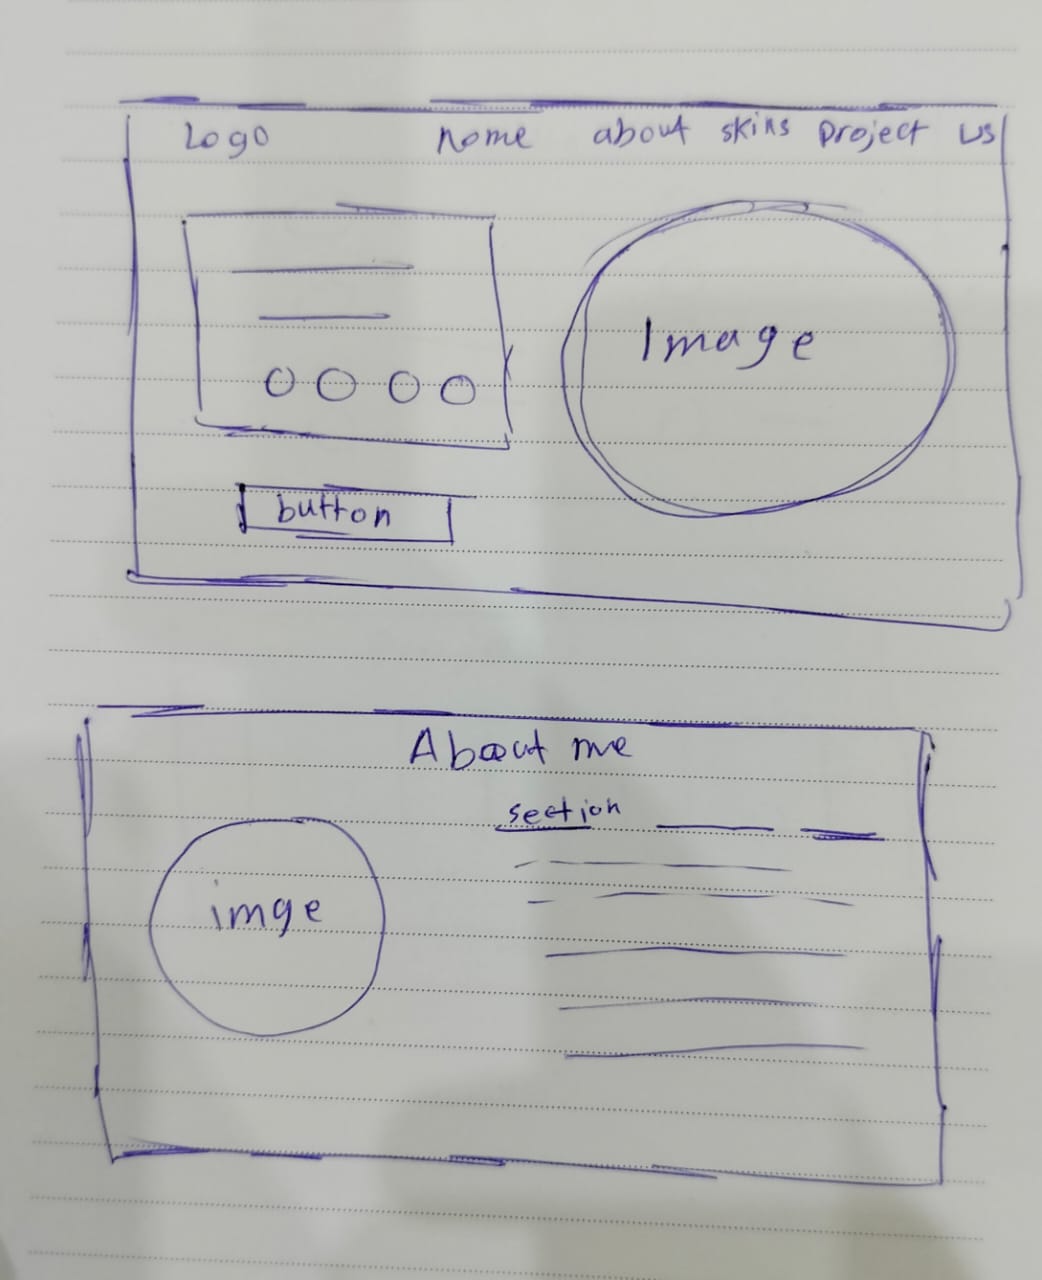 Logo home about skins project us
Image
button
About me
section
imge